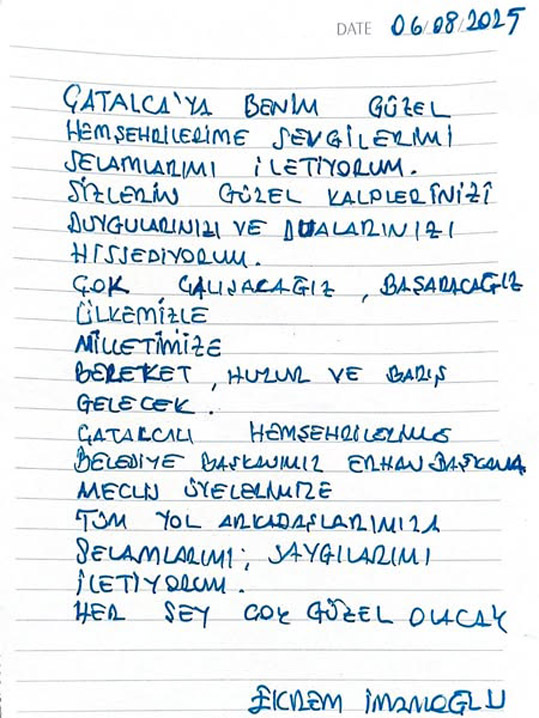 DATE 06/08/2025
ÇATALCA'YA BENİM GÜZEL
HEMŞEHRİLERİME SEVGİLERİMİ
SELAMLARIMI İLETİYORUM.
SİZLERİN GÜZEL KALPLERİNİZİ
DUYGULARINIZI VE DUALARINIZI
HİSSEDİYORUM.
ÇOK ÇALIŞACAĞIZ, BAŞARACAĞIZ
ÜLKEMİZLE
MİLLETİMİZE
BEREKET, HUZUR VE BARIŞ
GELECEK.
ÇATALCALI HEMŞEHRİLERİME
BELEDİYE BAŞKANIMIZ ERHAN BAŞKANA
MECLİS ÜYELERİMİZE
TÜM YOL ARKADAŞLARIMIZA
SELAMLARIMI, SAYGILARIMI
İLETİYORUM.
HER ŞEY ÇOK GÜZEL OLACAK
EKREM İMAMOĞLU